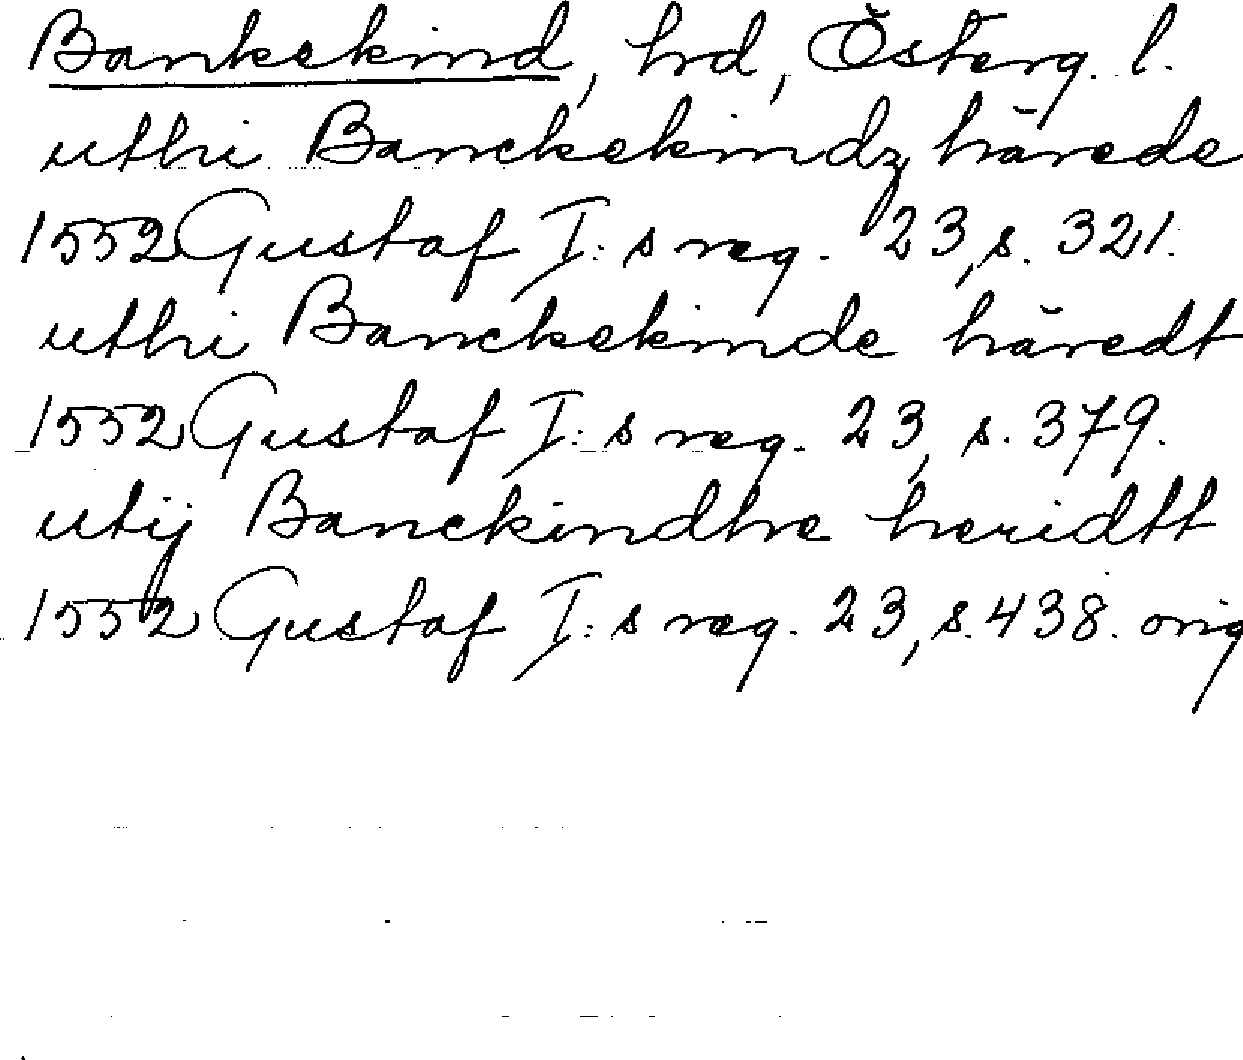 Bankekind, hrd, Österg. l.
uthi Banckekindz härede
1552 Gustaf I:s reg. 23, s. 321.
uthi Banckekinde häredt
1552 Gustaf I:s reg. 23, s. 379.
utij Banckindhe heridtt
1552 Gustaf I:s reg. 23, s. 438. orig